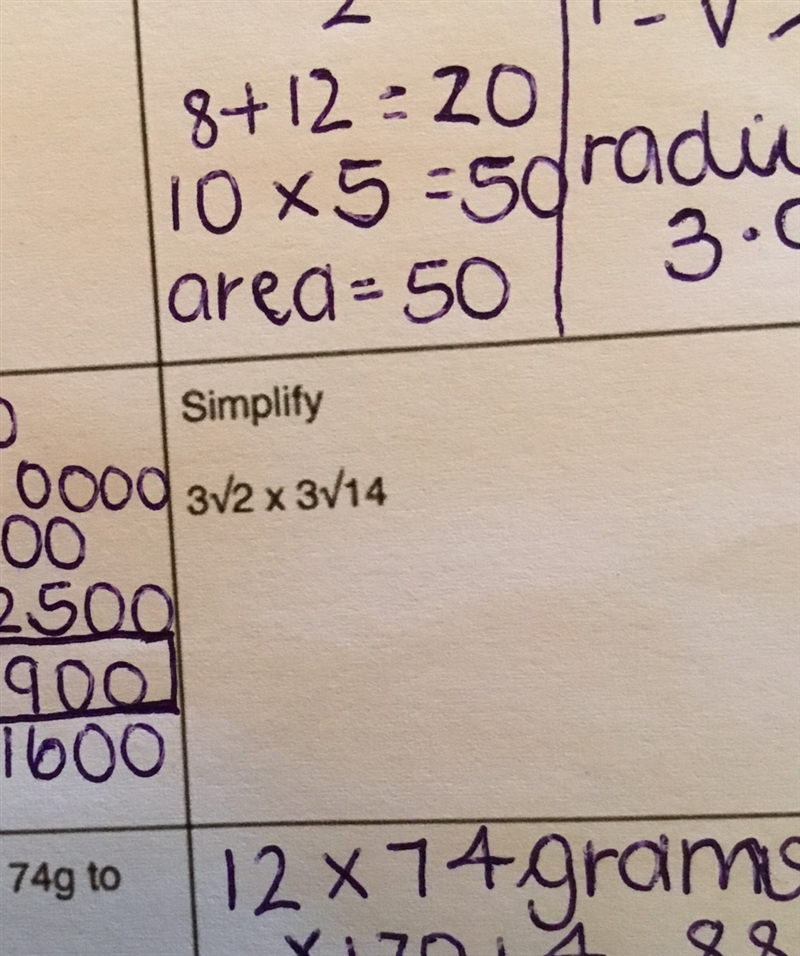 2
8+12=20
10×5=50
area=50
3.
0
0000
00
2500
900
1600
Simplify
3√2 x 3√14
74g to
12×74grams